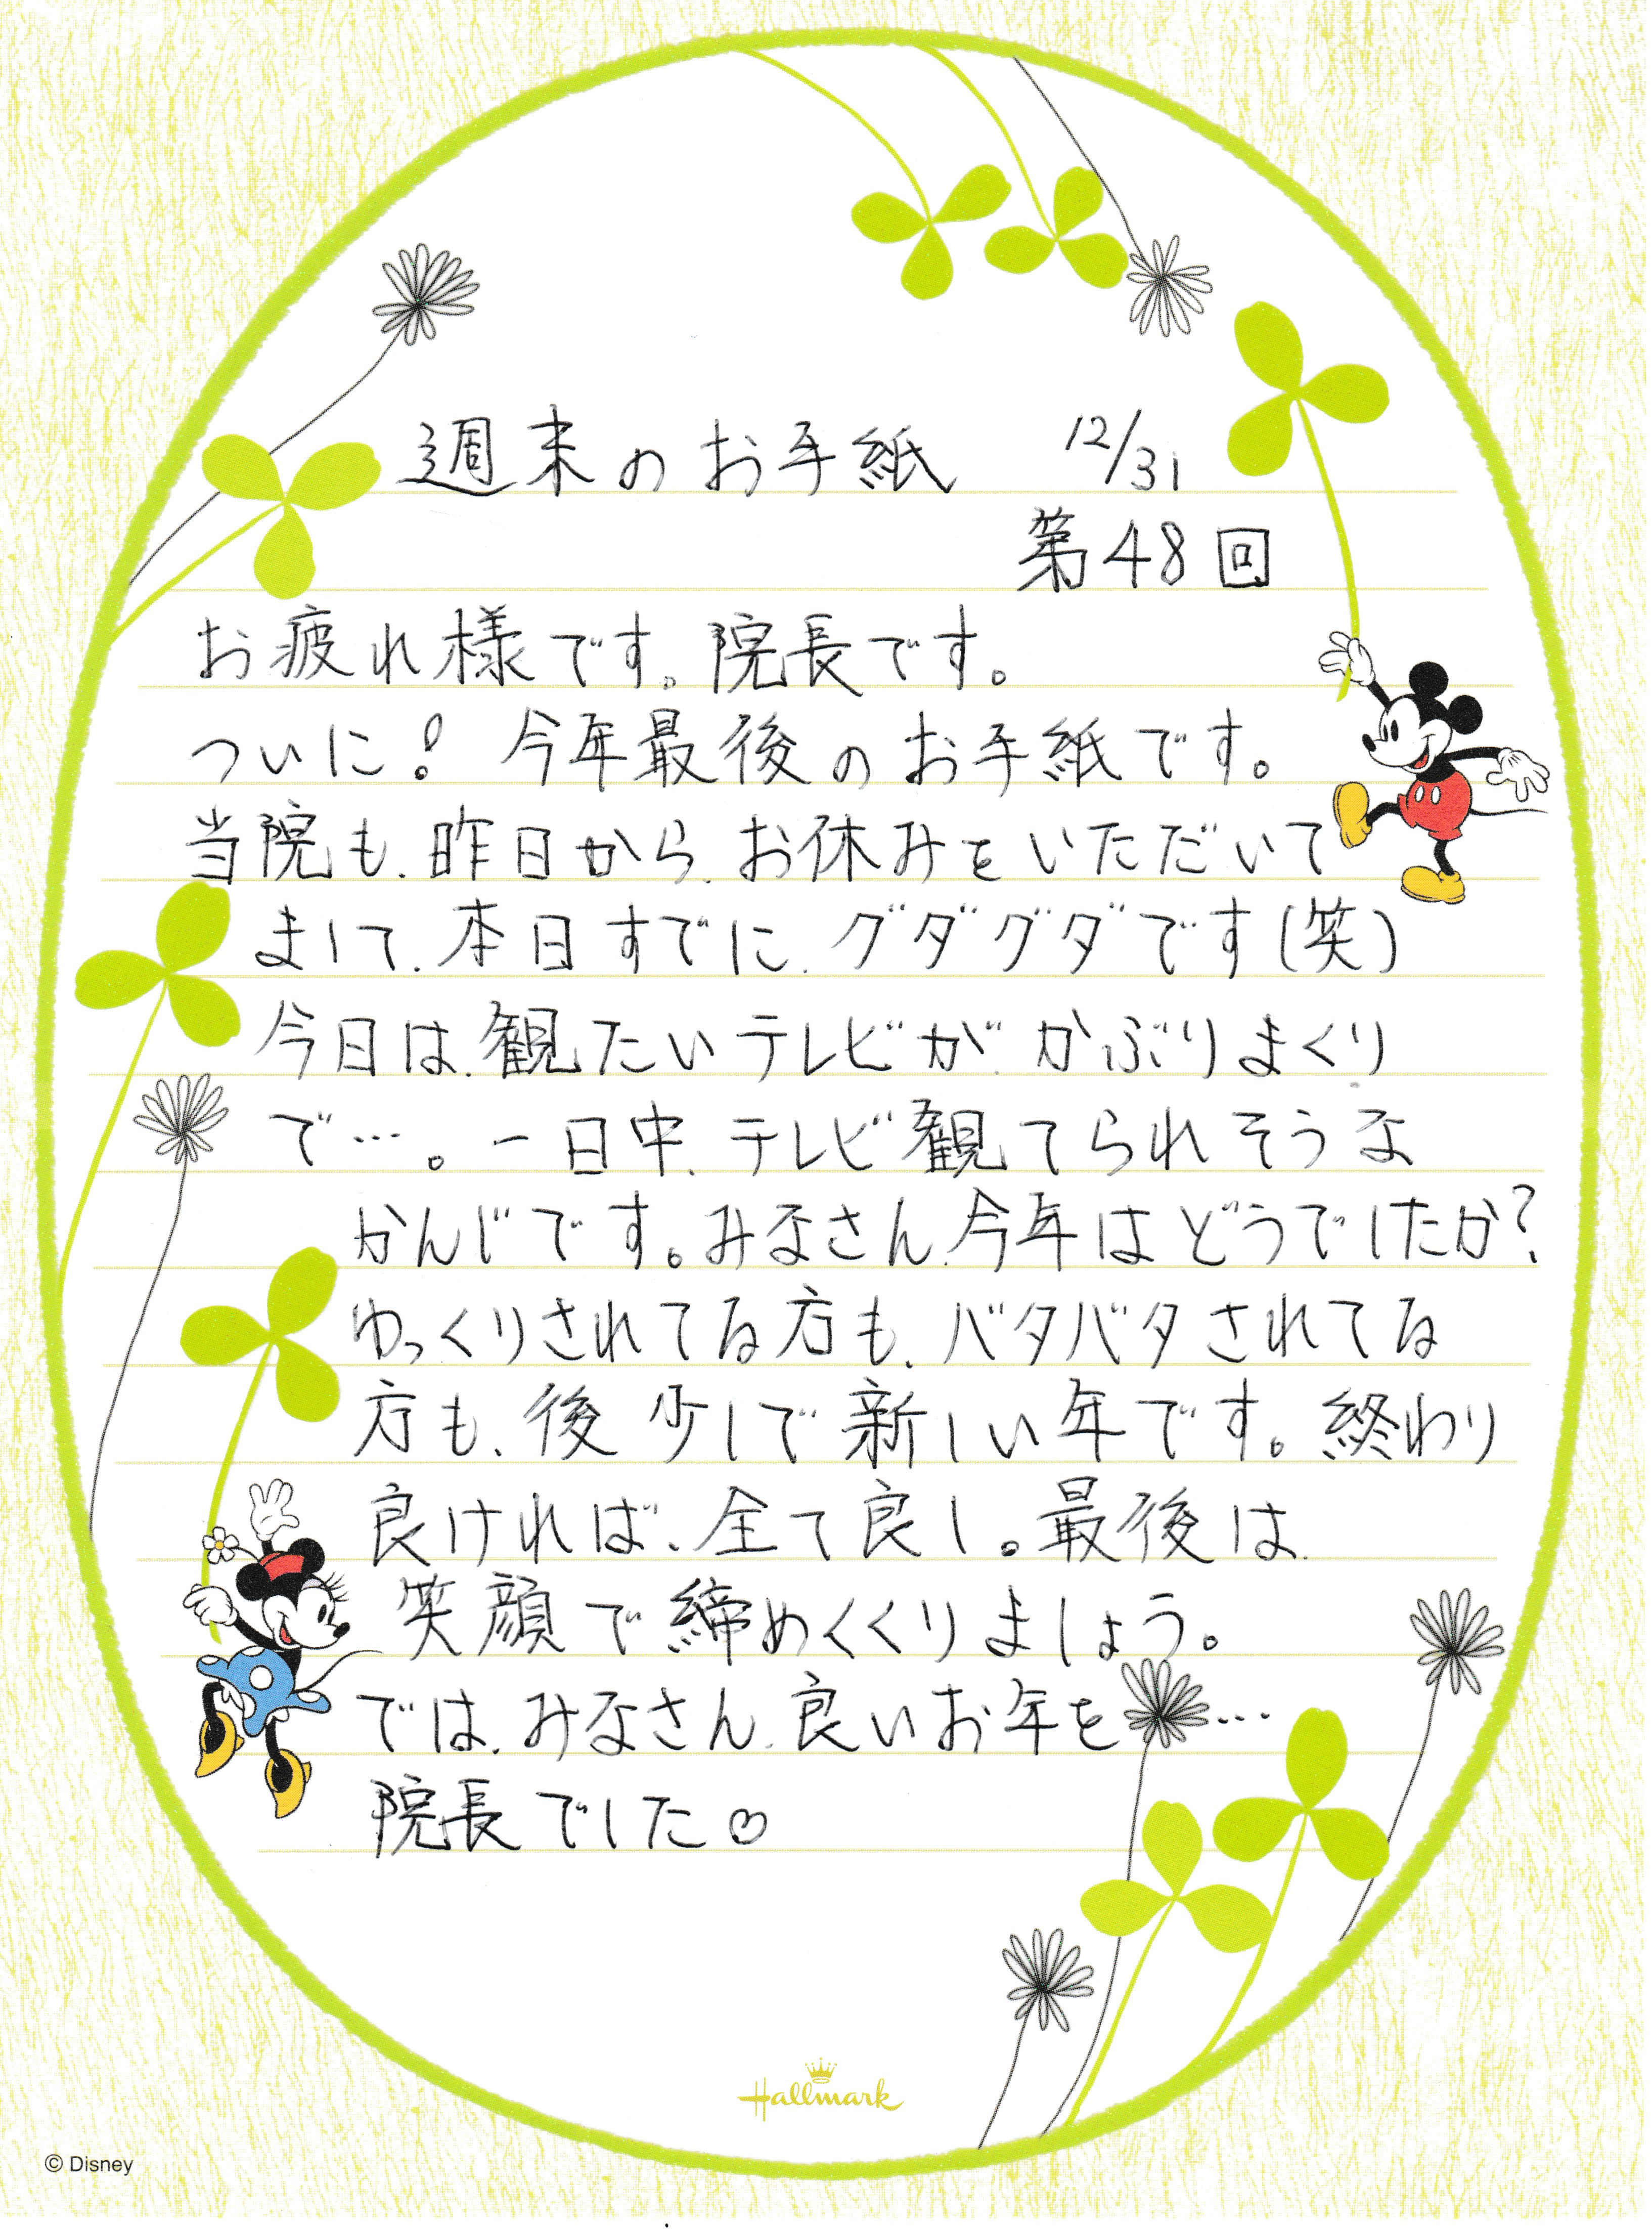 週末のお手紙 12/31
第48回
お疲れ様です。院長です。
ついに! 今年最後のお手紙です。
当院も、昨日から、お休みをいただいて
まして、本日すでに、グダグダです(笑)
今日は、観たいテレビが、かぶりまくり
で…。一日中、テレビ観てられそうな
かんじです。みなさん、今年はどうでしたか?
ゆっくりされてる方も、バタバタされてる
方も、後少しで新しい年です。終わり
良ければ、全て良し。最後は、
笑顔で締めくくりましょう。
では、みなさん、良いお年を…
院長でした♡
Hallmark
© Disney